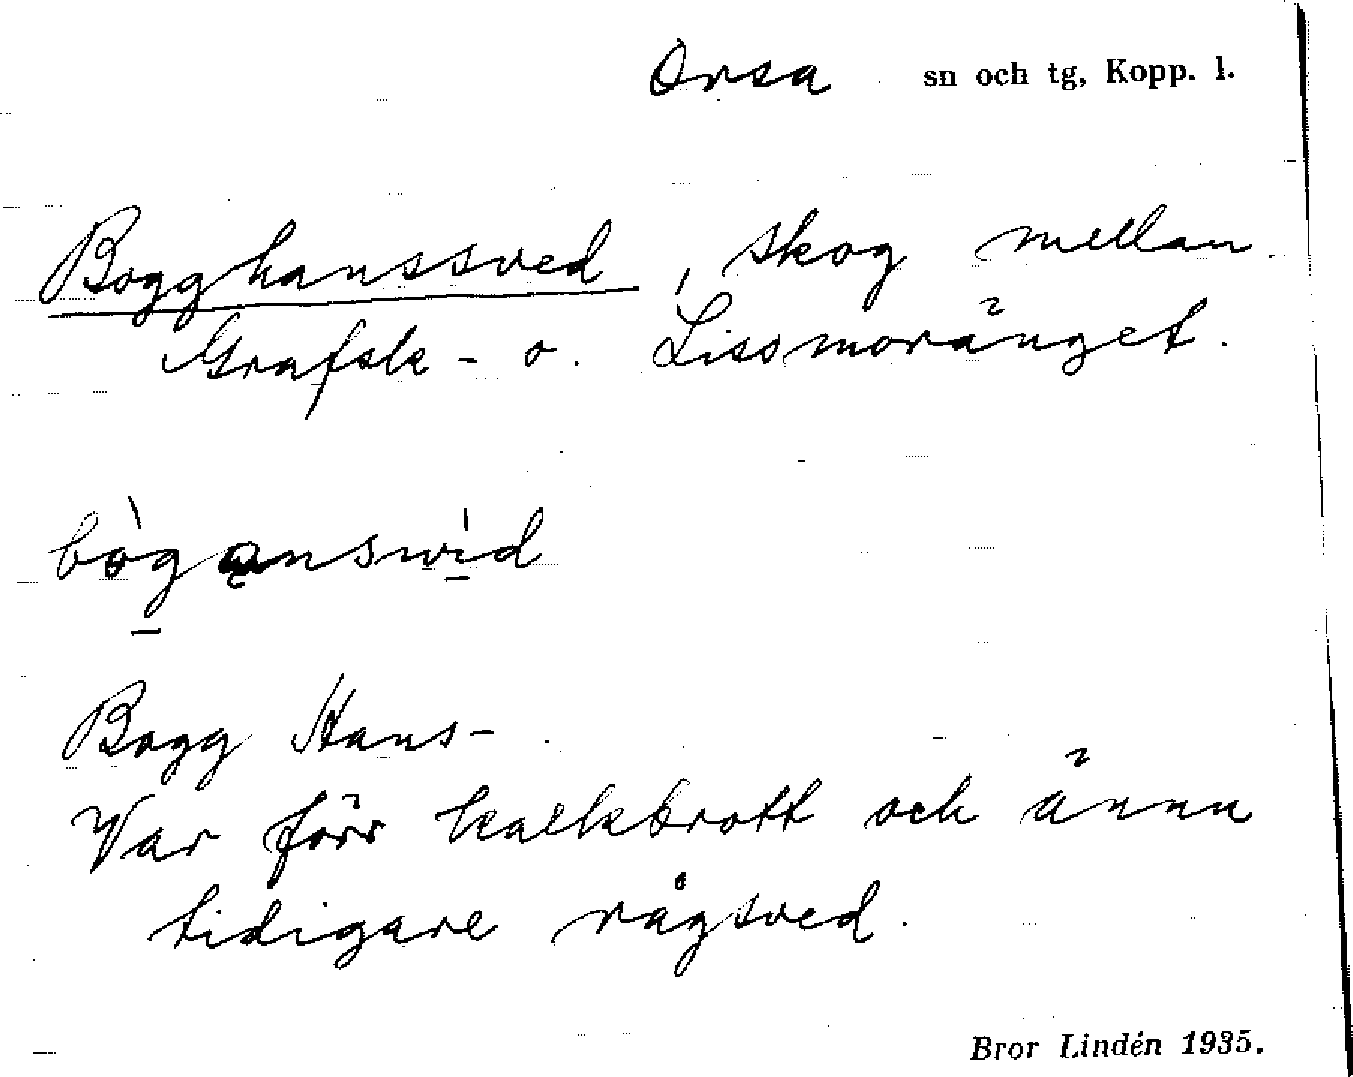 Orsa sn och tg, Kopp. l.
Bogghanssved, skog mellan
Grafsk- o. Lissmoränget.
bòganswìd
Bogg Hans-
Var förr kalkbrott och ännu
tidigare rågsved.
Bror Lindén 1935.